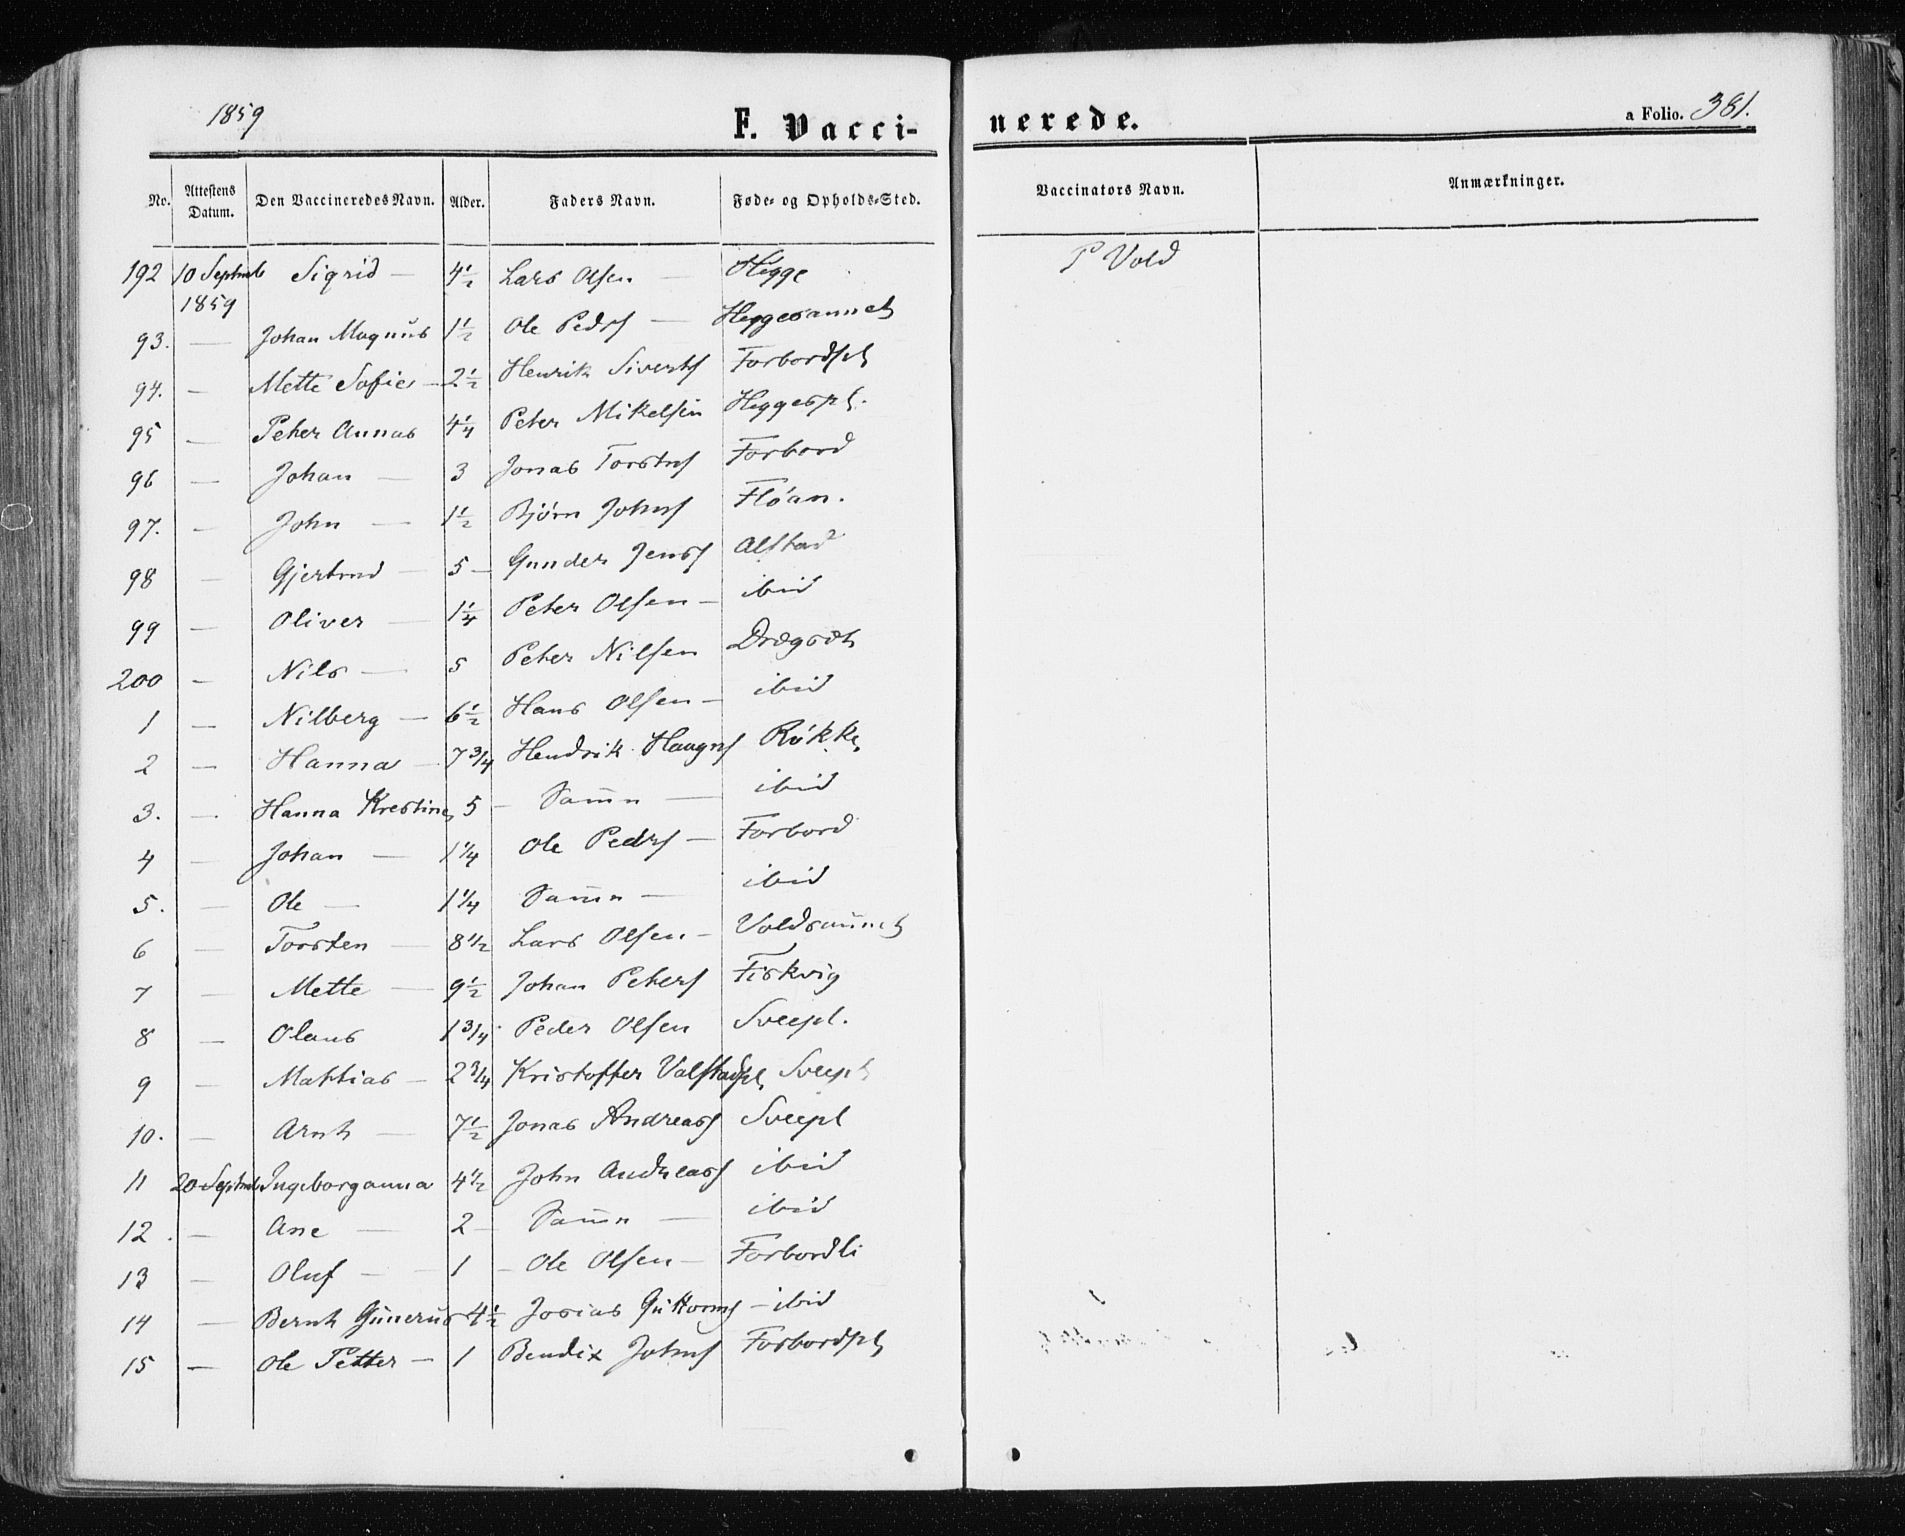 1859 F. Vacci- nerede. a Folio. 381.
No. Attestens Datum. Den Vaccineredes Navn. Alder. Faders Navn. Føde- og Opholds-Sted. Vaccinators Navn. Anmærkninger.
192 10 Septmb Sigrid — 4½ Lars Olsen — Hegge P Vold
1859
93. — Johan Magnus 1½ Ole Peds — Heggesaunet
94. — Mette Sofie — 2½ Henrik Siverts Forbordspl
95 — Peter Annas 4¼ Peter Mikelsen Heggespl.
96 — Johan — 3 Jonas Torstns Forbord
97. — John — 1½ Bjørn Johns Fløan.
98 — Gjertrud — 5 — Gunder Jenss Alstad
99 — Oliver — 1¼ Peter Olsen — ibid
200 — Nils — 5 Peter Nilsen Drogset
1 — Nilberg — 6½ Hans Olsen — ibid
2 — Hanna — 7 3/4 Hendrik Haagns Røkke
3. — Hanna Krestine 5 — Samn — ibid
4 — Johan — 1 1/4 Ole Pedrs — Forbord
5. — Ole — 1 1/4 Samn — ibid
6 — Torsten — 8 1/2 Lars Olsen — Voldsaunet
7 — Mette — 9½ Johan Peters Fiskvig
8 — Olaus 1 3/4 Peder Olsen Sveepl.
9 — Mattias — 2 3/4 Kristoffer Valstadpl Sveepl
10. — Arnt — 7½ Jonas Andreass Sveepl
11 20 Septmb Ingeborganna 4½ John Andreass ibid
12. — Ane — 2 — Samn — ibid
13 — Oluf — 1 — Ole Olsen — Forbordli
14 — Bernt Gunerus 4½ Josias Guttorms — ibid
15 — Ole Petter — 1 Bendix Johns Forbordspl